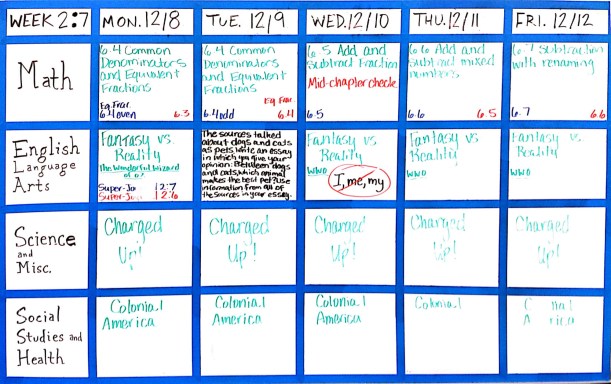 WEEK 2:7
MON. 12/8
TUE. 12/9
WED. 12/10
THU. 12/11
FRI. 12/12
Math
6.4 Common
Denominators
and Equivalent
Fractions
Eq. Frac.
6.4 even
6.3
6.4 Common
Denominators
and Equivalent
Fractions
Eq. Frac.
6.4 odd
6.4
6.5 Add and
Subtract Fraction
Mid-chapter check
6.5
6.6 Add and
Subtract mixed
numbers
6.6
6.5
6.7 Subtraction
with renaming
6.7
6.6
English
Language
Arts
Fantasy vs.
Reality
The Wonderful Wizard
of
Super-Jo
12:7
Super-Jo
12:6
The sources talked
about dogs and cats
as pets. Write an essay
in which you give your
opinion: Between dogs
and cats, which animal
makes the best pet? Use
information from all of
the sources in your essay.
Fantasy vs.
Reality
WWO
I, me, my
Fantasy vs.
Reality
WWO
Fantasy vs.
Reality
WWO
Science
and
Misc.
Charged
Up!
Charged
Up!
Charged
Up!
Charged
Up!
Charged
Up!
Social
Studies and
Health
Colonial
America
Colonial
America
Colonial
America
Colonial